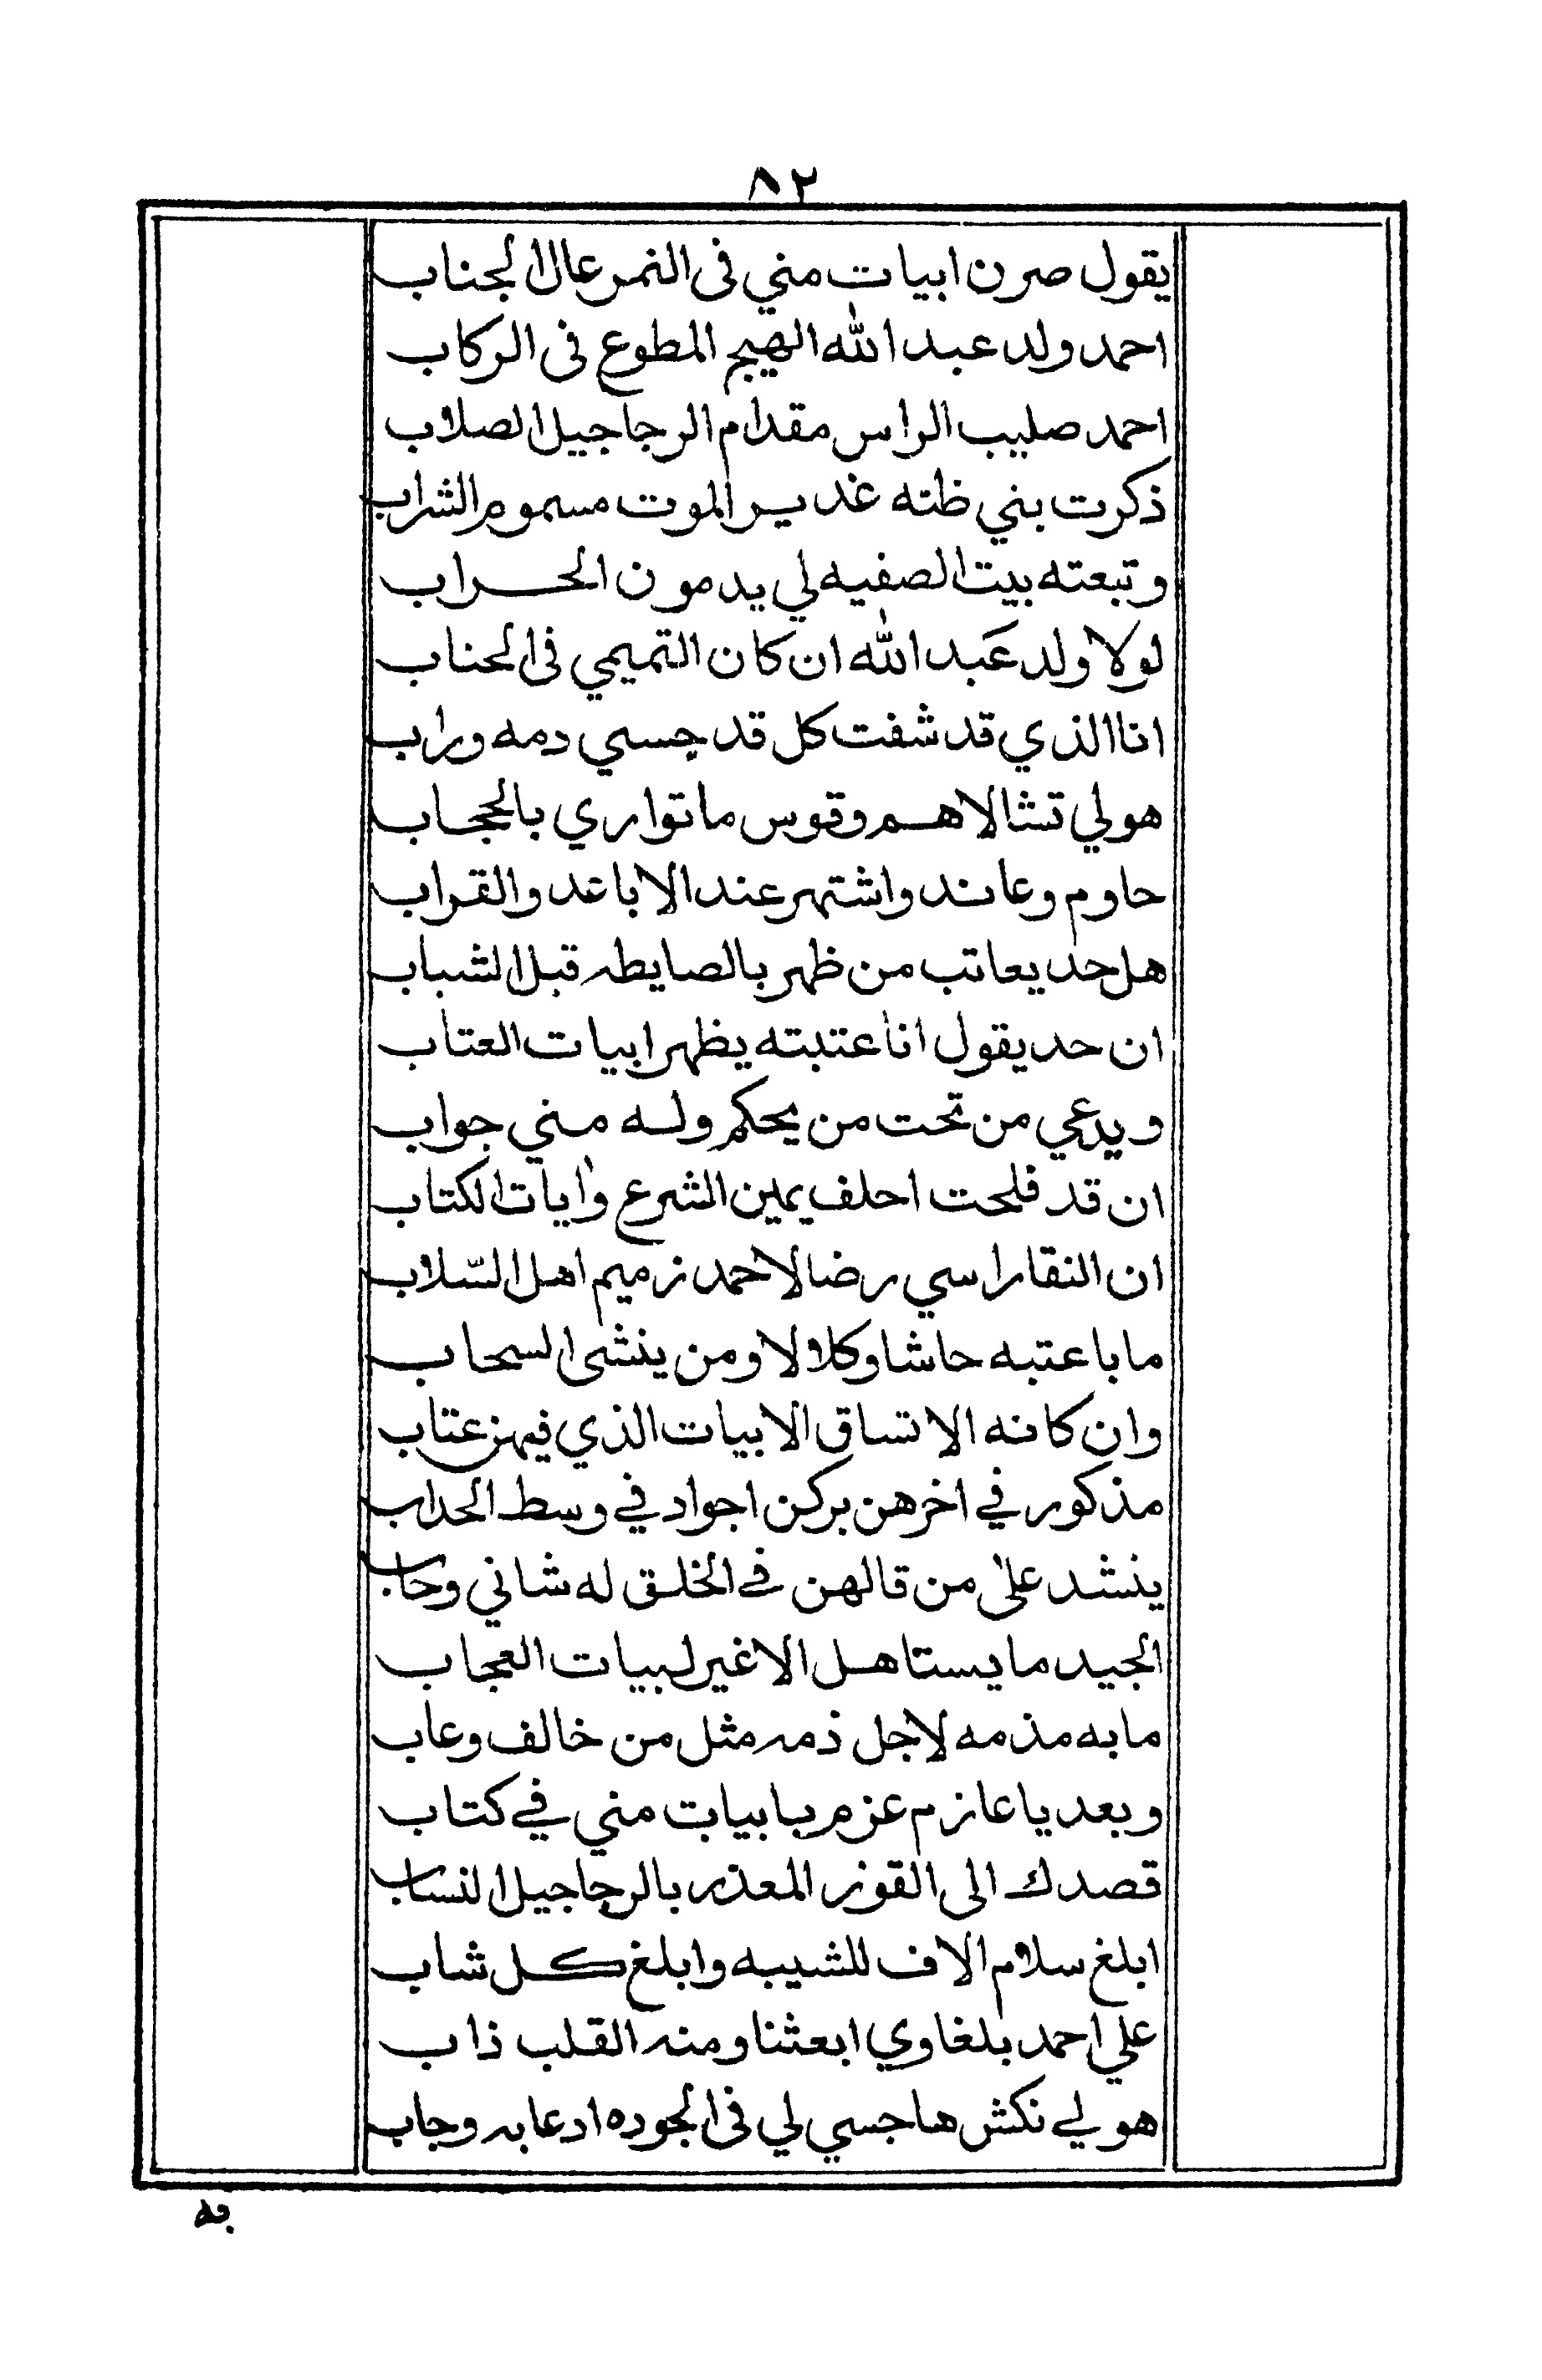 ٨٢
يقول صرن ابيات مني فى النمر عال الجناب
احمد ولد عبد الله الهيج المطوع فى الركاب
احمد صليب الراس مقدام الرجاجيل الصلاب
ذكرت بني ظنه غدير الموت مسموم الشراب
وتبعته بيت الصفيه لي يدمون الحراب
لولا ولد عبد الله ان كان التميمي فى الحناب
انا الذي قد شفت كل قد جسي دمه وراب
هو لي تشالاهم وقوس ما تواري بالحجاب
حاوم وعاند واشتهر عند الاباعد والقراب
هل حد يعاتب من ظهر بالصايطه قبل الشباب
ان حد يقول انا عتبته يظهر ابيات العتاب
ويدعي من تحت من يحكم وله مني جواب
ان قد فلحت احلف يمين الشرع وايات الكتاب
ان النقا راسي رضا لاحمد زميم اهل السّلاب
ما باعتبه حاشا وكلا لا ومن ينشى السحاب
وان كانه الا تساق الابيات الذي فيهن عتاب
مذكور في اخرهن بركن اجواد في وسط الحداب
ينشد على من قالهن في الخلق له شاني وحاب
الجيد ما يستاهل الا غير لبيات العجاب
ما به مذمه لاجل ذمه مثل من خالف وعاب
وبعد يا عازم عزم بابيات مني في كتاب
قصدك الى القوز المعذر بالرجاجيل النساب
ابلغ سلام الاف للشيبه وابلغ كل شاب
علي احمد بلغاوي ابعثنا ومنه القلب ذاب
هو لي نكش هاجسي لي فى الجوده ادعا به وجاب
به